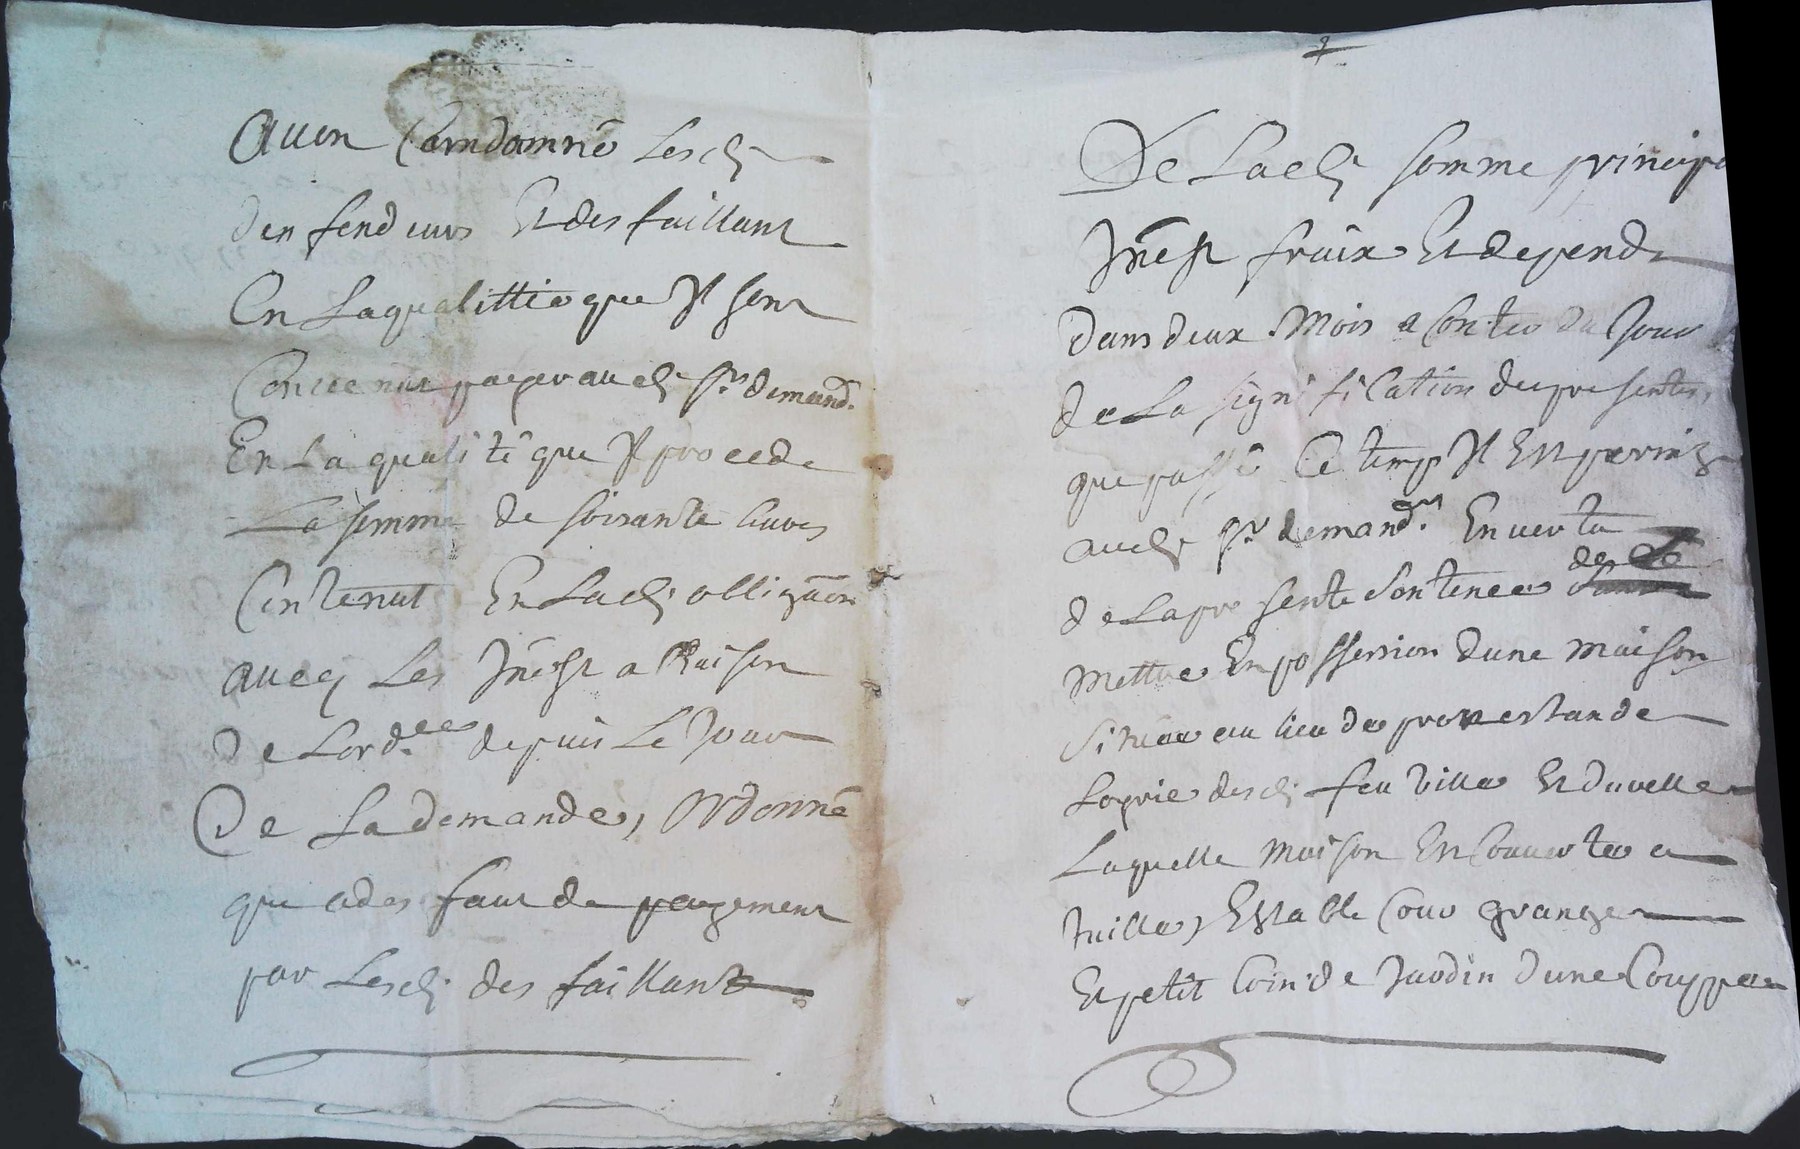 Avon Condamné Lesd
deffendeurs Et desfaillant
En Laqualittée que Jl sont
Concernne payer aud Sr demandr
En La qualité que Jl procede
La somme de soixante livres
Contenut En Lad obligaôn
avecq Les Jnêst a Raison
de Lordce depuis Le Jour
De La demande, Ordonné
que ades faut de payement
par Lesd des faillant
De Lad somme principa
Jnêst fraix Et depend
dans deux Mois a Conter du Jour
de La signification des presentes,
que passé Ce temp Jl Est permis
aud Sr demandr En vertu
de Lapresente Sentence de se
Mettre En possession dune maison
Situéee au lieu de
Laquelle maison Est Couverte a
tuille, Estable Cour grange
Et petit Coin de Jardin dune Couppee